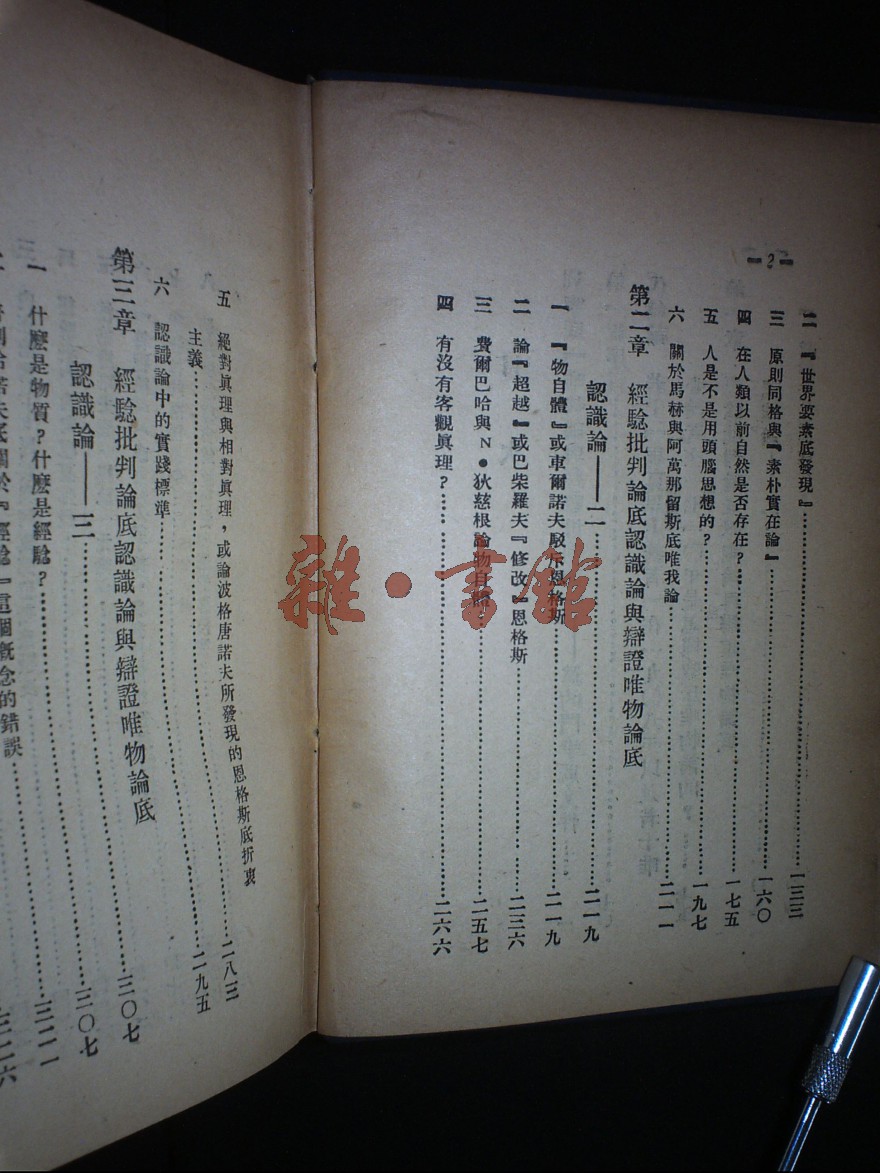 —2—
二 『世界要素底發現』……一三三
三 原則同格與『素朴實在論』……一六〇
四 在人類以前自然是否存在?……一七五
五 人是不是用頭腦思想的?……一九七
六 關於馬赫與阿萬那留斯底唯我論……二一一
第二章 經驗批判論底認識論與辯證唯物論底
認識論——二……二一九
一 『物自體』或車爾諾夫駁斥恩格斯……二一九
二 論『超越』或巴柴羅夫『修改』恩格斯……二三六
三 費爾巴哈與N•狄慈根論物自體……二五七
四 有沒有客觀眞理?……二六六
五 絕對眞理與相對眞理,或論波格唐諾夫所發現的恩格斯底折衷
主義……二八三
六 認識論中的實踐標準……二九五
第三章 經驗批判論底認識論與辯證唯物論底
認識論——三……三〇七
一 什麽是物質?什麽是經驗?……三〇七
關於『經驗』這個概念的錯誤
雜•書館